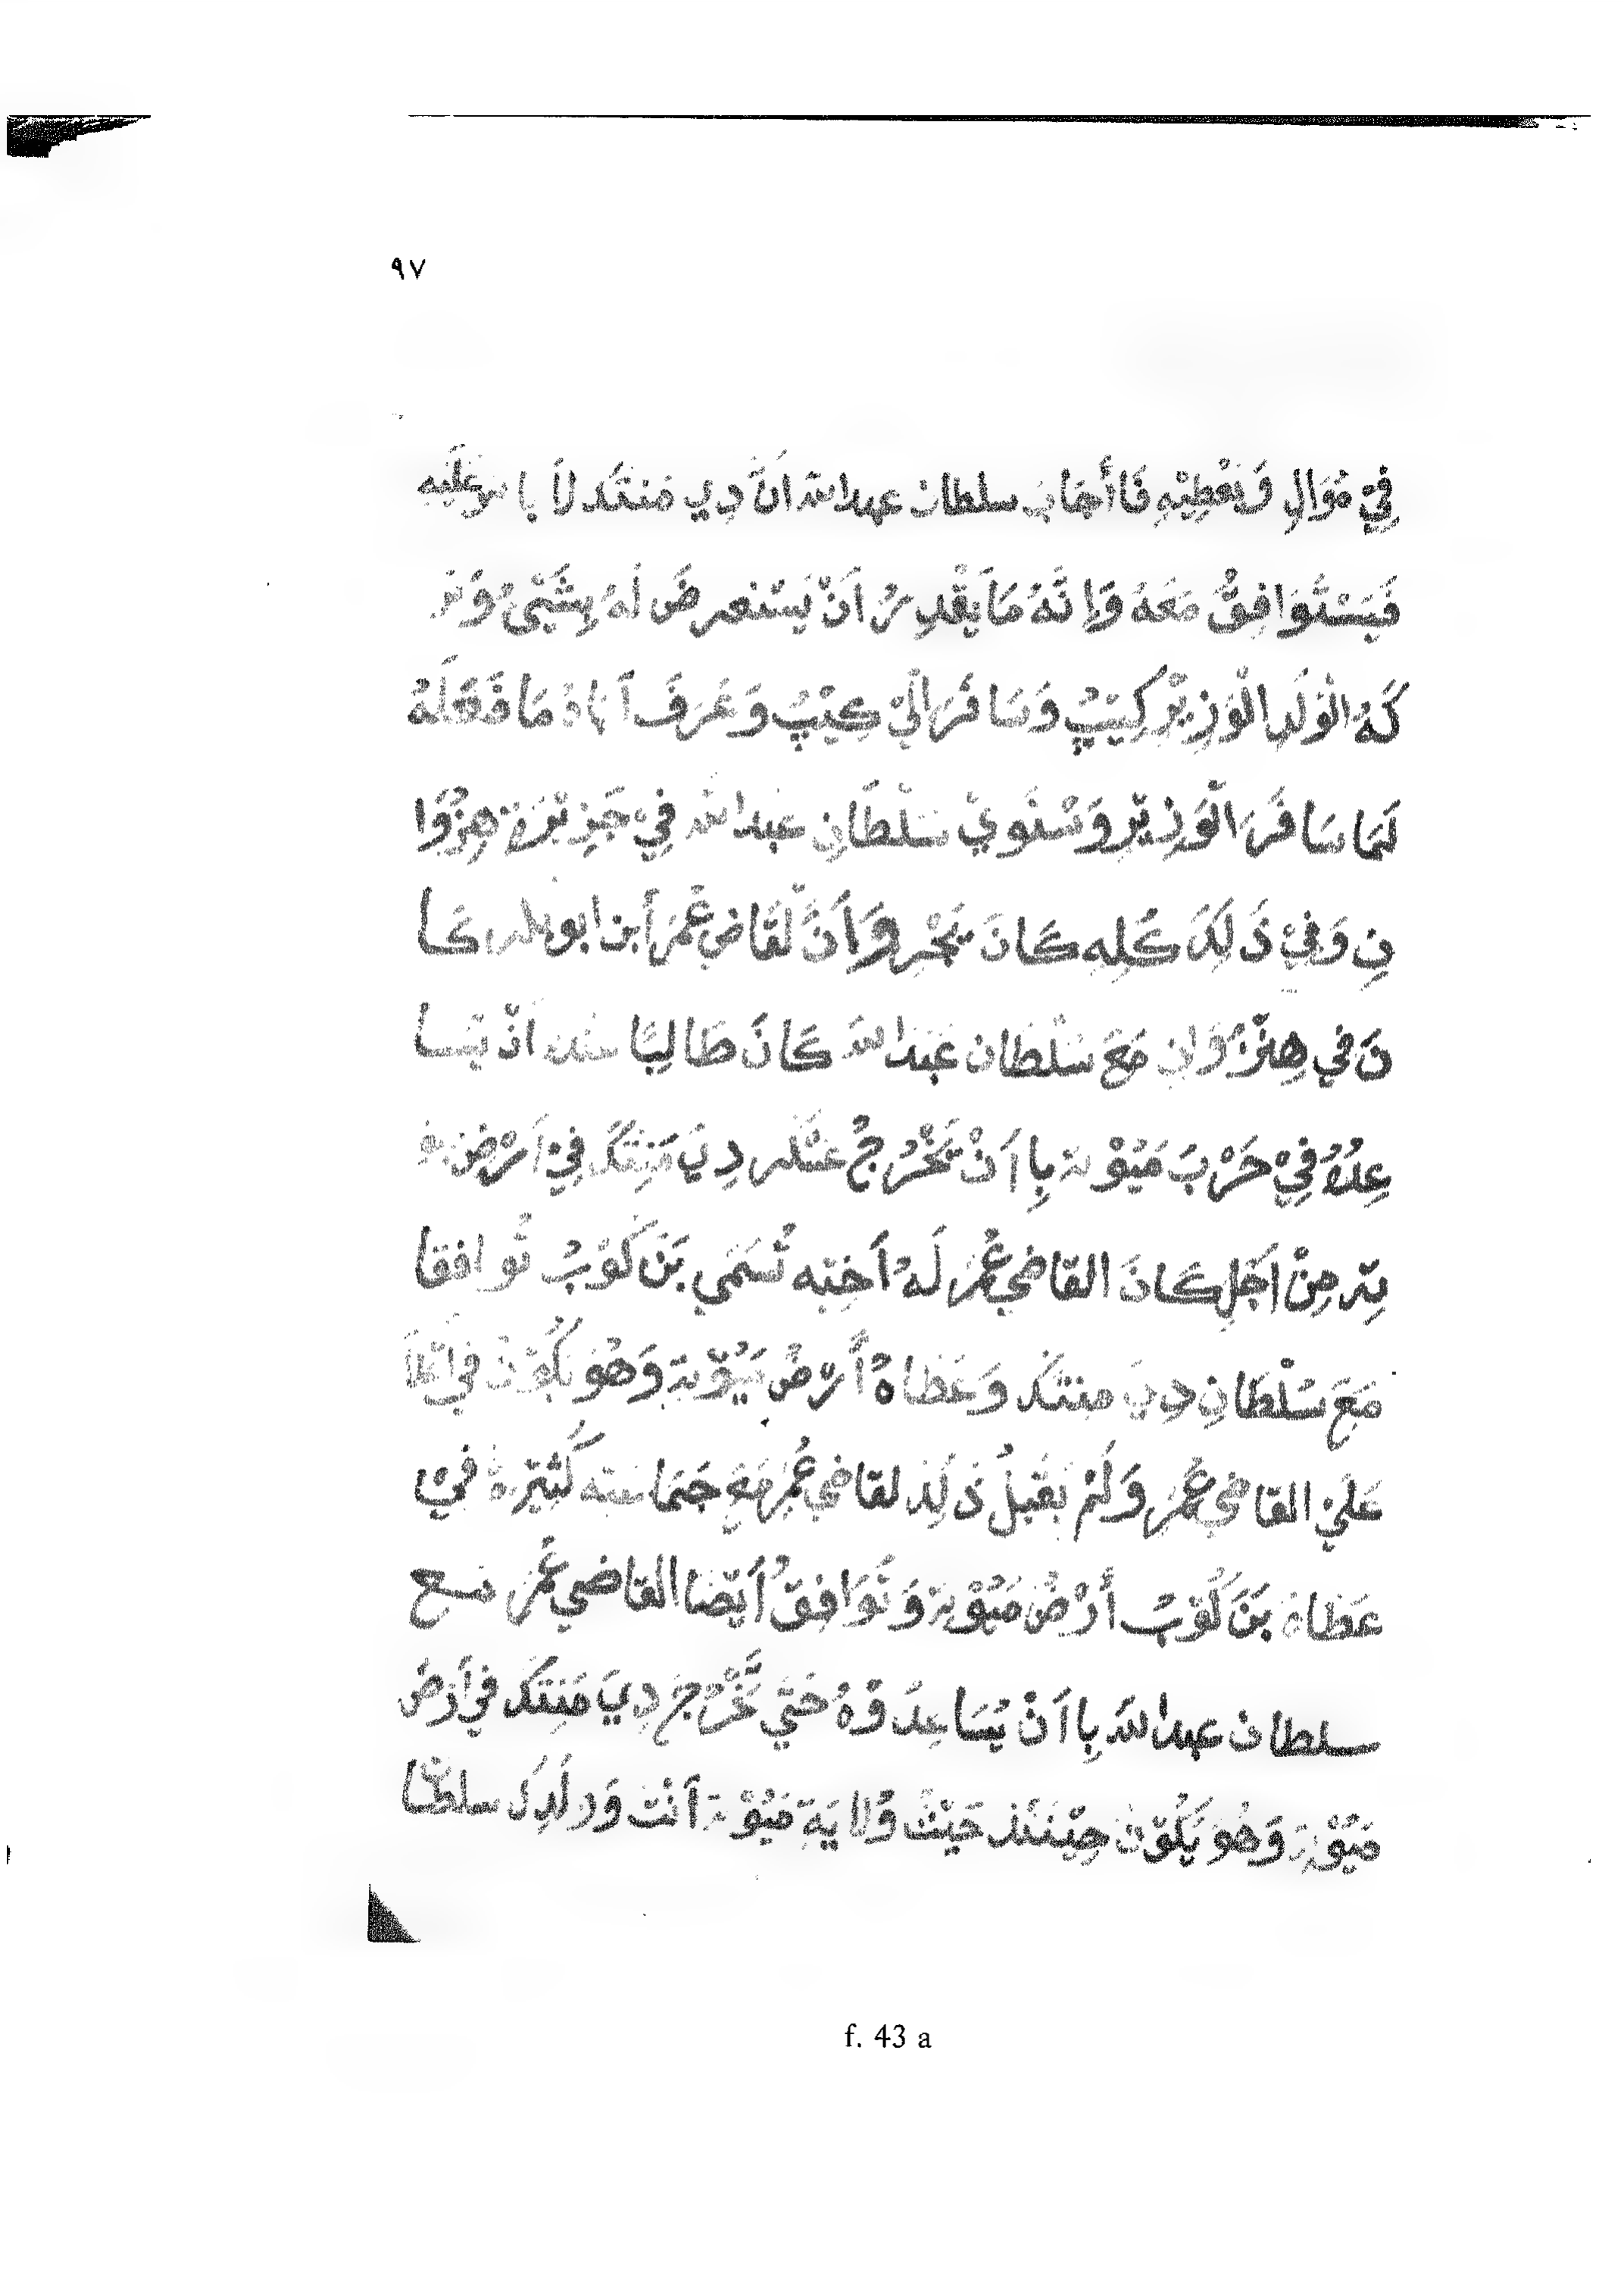 ٩٧
فِيْ مُوَالِ وَيُعْطِيْهِ فَاأَجَابَ سلطان عبدالله اَنَّ دِي مَنتَكَد لَا با عَلَيه
فَيَسْتَوَافِقُ مَعَهُ وَاِنَّهُ مَا يَقْدِرُ اَنْ يَسْتَعرضَ لَهُ بِشَيْئُ وَتَرَ
كَهُ الْوَلَدِ الْوَزِيْرِ كِيَبٍ وَسَافَرَ اِلَيْ كِيْبُ وَعَرَفَ أَبَاهُ مَا فَعَلَهُ
لَمَا سَافَرَ الْوَزِيْرِ وَسْتَوِيْ سَلْطَانِ عَبدالله فِيْ جَزِيْرَة هِزُوَا
نِ وَفِيْ ذَلِكَ كُلِهِ كَانَ يَجْرِ وَاَنَّ لْقَاضِ عُمَرَ أبن ابو كا
نَ فِي هِنْزُوَانِ مَعَ سَلْطَان عَبْدالله كَانَ طَالِبًا اَنْ يسا
عِدُهُ فِيْ حَرْبَ مَيُوْتة بِااَنْ يَخْرُجُ دِيَ مَنِتَكَد فِيْ اَرْض مَيُو
تِة مِنْ اَجَلِ كَانَ القاضِي عُمَرُ لَهُ اَخيِه تُسَمَي بَنَ كُوْبُ تُوافقا
مَعَ سُلْطَانِ دِيَ منتكَد وَعَطَاهُ أَرْضُ مَيُوْتِة وَهُوَ يَكُوْنْ فِي
عَلَيْ القاضِي عُمَرُ وَلَمْ يَقْبَلُ ذَلِكَ لقاضي عُمَرُ مَعَ جَمَاعَته كَثِيْرة فِيْ
عَطَاهُ بَنَ كُوْبُ أَرْضُ مَيُوْتِة وَتُوَافِقَ أَيْضَا القاضي عُمَرَ مع
سلطان عبدالله بِااَنْ يُسَاعِدَوْهُ حَتَي يَخْرُجَ دِيَ مَنِتَكَد فِي أَرْضُ
مَيُوْتِة وَهُوَ يَكُوْنَ حِيْنَئَذ حَيْثُ وَلَايَةِ مَيُوْتة اَنْتَ وَوَلَدِكَ سلطَا
f. 43 a